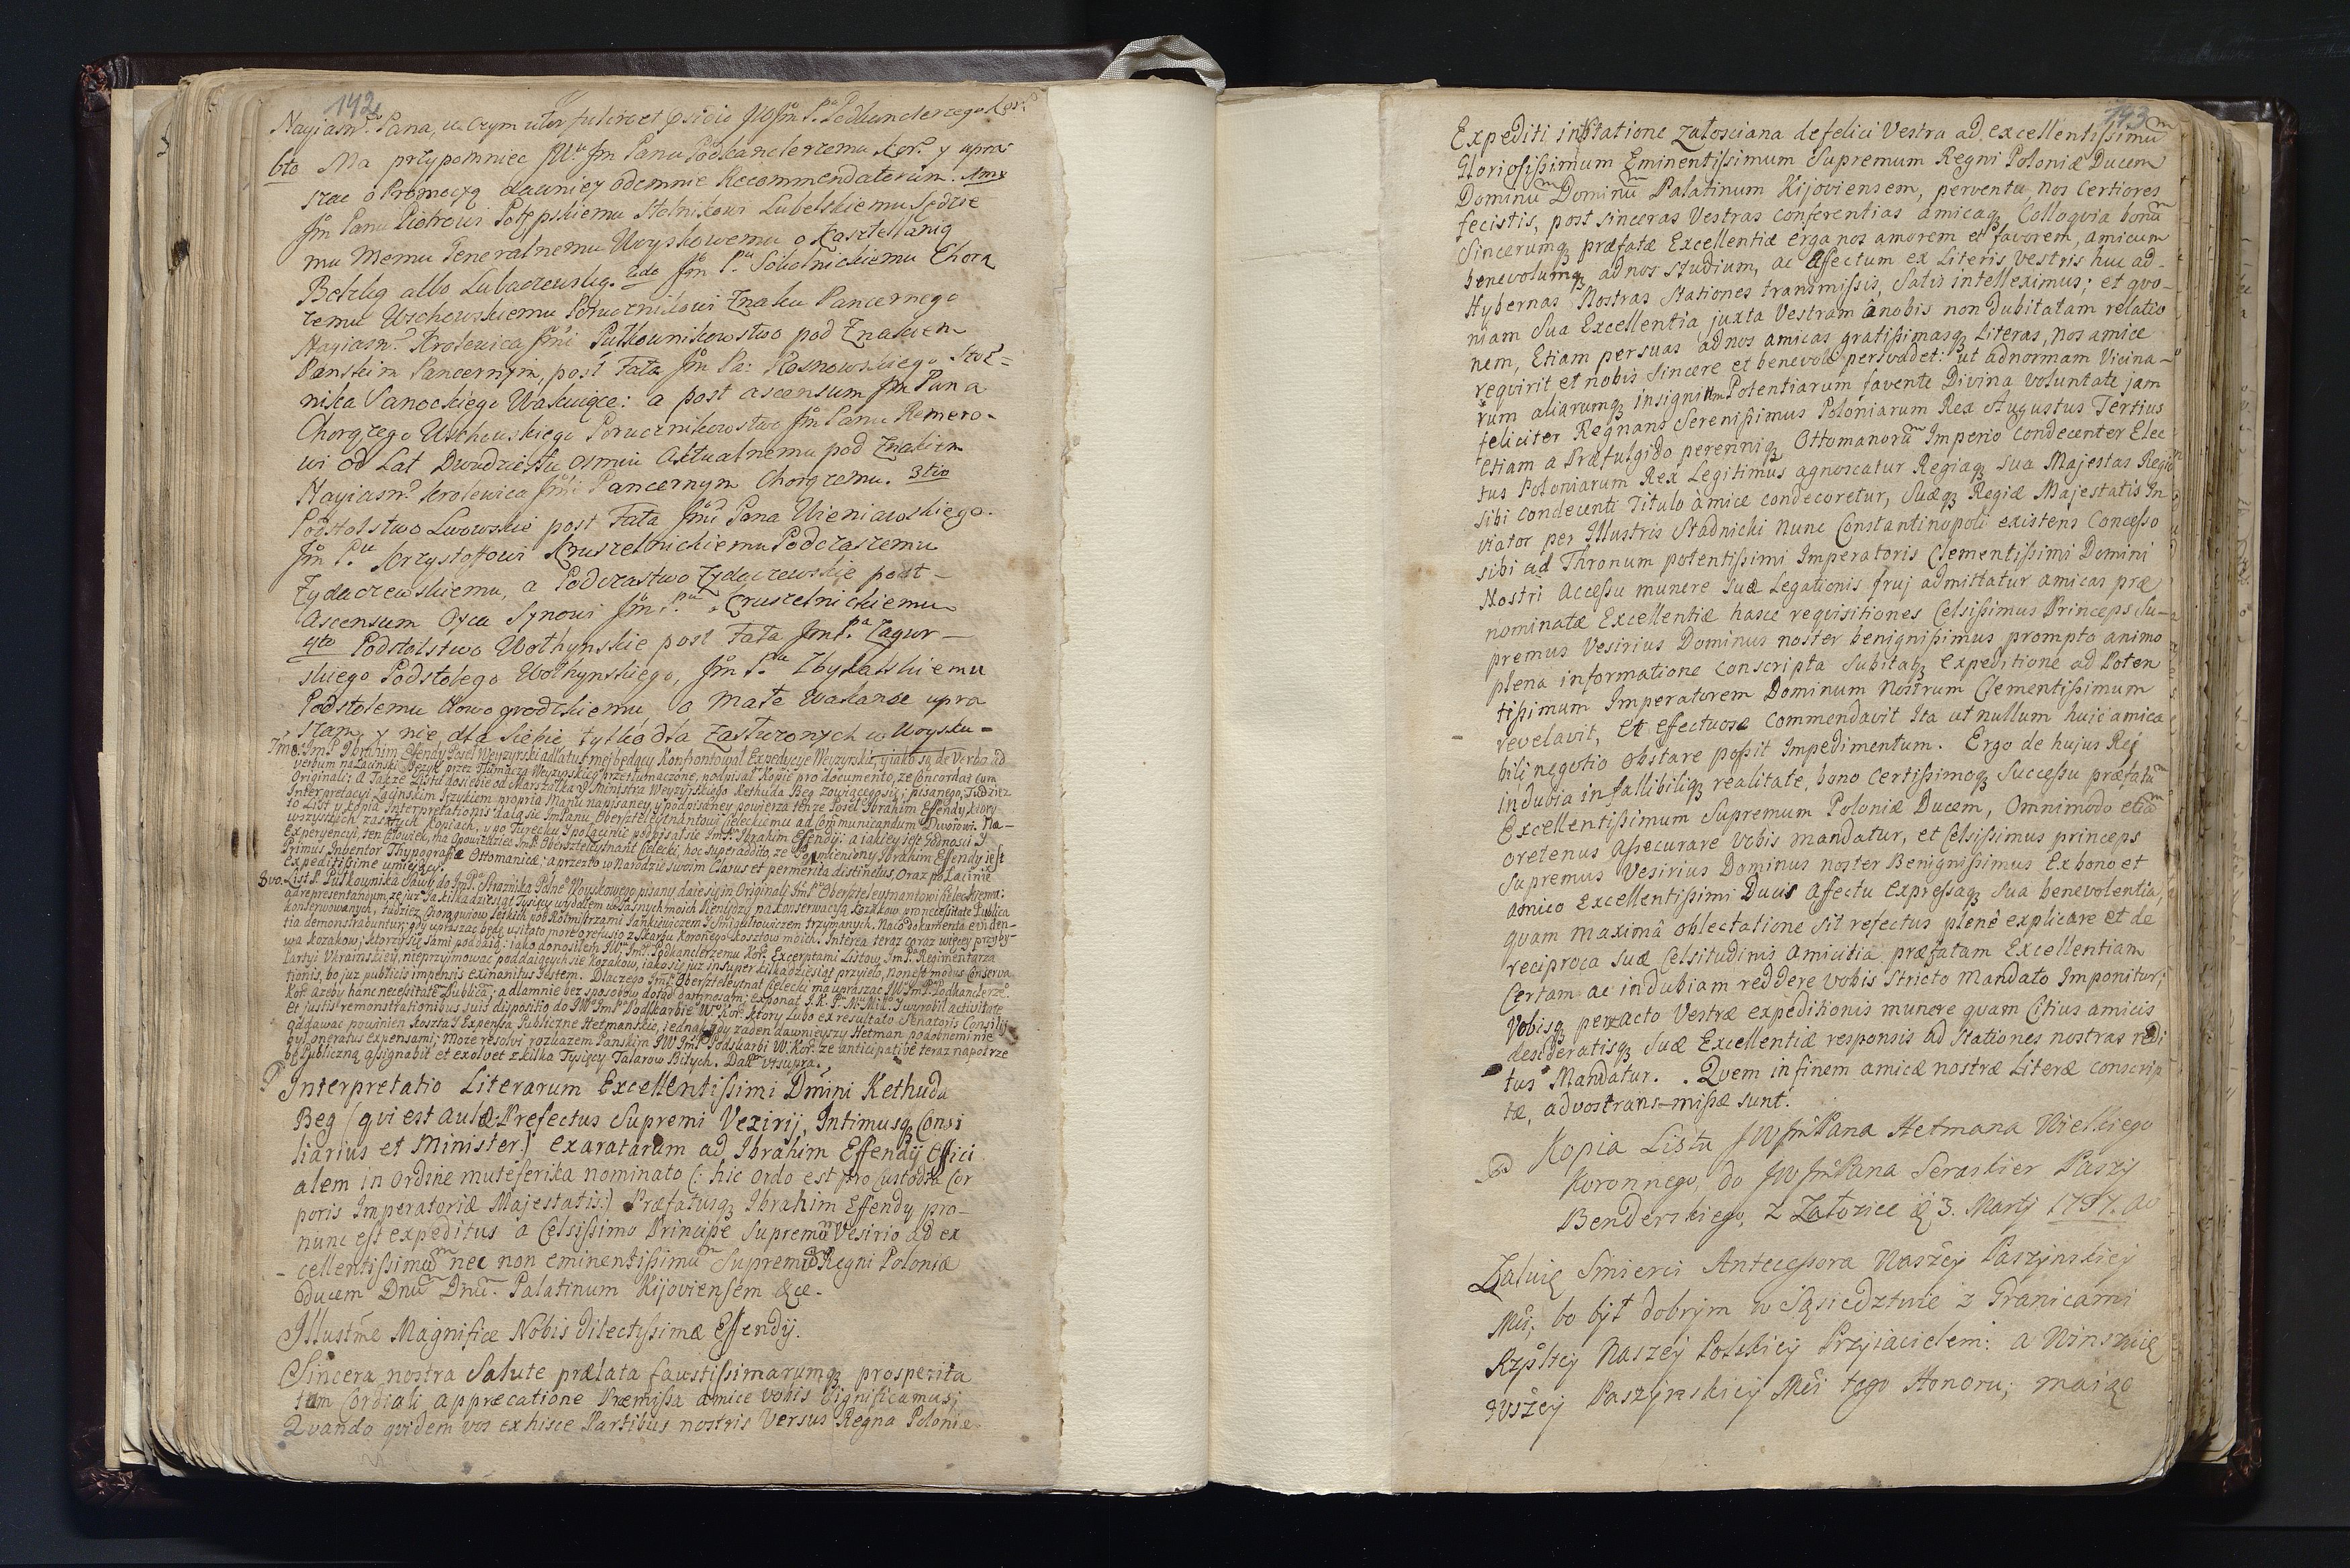 142
Nayiasn. Pana, w czym
6to Ma przypomniec JWu Jm Panu Podkanclerzemu Kor. y upra
szac o Promocyą dawniey odemnie Recommendaterum. 1mo
Jm Panu Piotrowi Potępskiemu Stolnikowi Lubelskiemu Sędzie
mu Memu Generalnemu Woyskowemu o Kasztellanią
Betzką albo Lubaczewską. 2do Jm Pu Sokolnickiemu Chorą
żemu Wschowskiemu Porucznikowi Znaku Pancernego
Nayiasn. Krolewica Jmci Putkownikowstwo pod Znakiem
Panskim Pancernym, post Fata Jm Pa: Rosnowskiego Stol=
nika Sanockiego Wakuiące: a post ascensum Jm Pana
Chorążego Wschowskiego Porucznikowstwo Jm Panu Remero-
wi od Lat Dwudziestu osmiu Aktualnemu pod Znakiem
Nayiasn. Krolewica Jmci Pancernym Chorążemu. 3tio
Podstolstwo Lwowskie post Fata Jmci Pana Wieniawskiego.
Jm Pu Krzysztofowi Kruszelnickiemu Podczaszemu
Zydaczewskiemu, a Podczastwo Zydaczewskie post-
Ascensum Oyca Synowi Jmci Pu Kruszelnickiemu
4to Podstolstwo Wołhynskie post Fata Jm Pa Zagur-
skiego Podstolego Wołhynskiego, Jm Pu Zbyżewskiemu
Podstolemu Nowogrodzkiemu, o Małe Wakanse upra
szam y nie dla siebie tylko dla Zasłużonych w Woysku=
7mo: Jm P. Ibrahim Effendy Poseł Weyzyrski adlatus mej będący Konfrontował Expedycye Weyzyrskie, y iako są de Verbo ad
Verbum na Łacinski Język przez Tłumacza Weyzyrskiego przetłumaczone, podpisał Kopie pro documento, ze Concordat cum
Originali; A Takze Listu do siebie od Marszałka y Ministra Weyzyrskiego Kethuda Beg zowiącego się; pisanego, Tudziez
Interpretacyi Łacinskim Językiem propria Manu napisaney y podpisaney powierza tenze Poseł Ibrahim Effendy, ktory
to List y kopia Interpretationis dała się Jm Panu Oberszteleytnantowi Heleckiemu ad Communicandum Dworowi. Na-
wszystkich zasłych Kopiach, y po Turecku y po Łacinie podpisał się Jm P. Ibrahim Effendy: a iakiey iest Godnosci y
Experyencyi, ten Człowiek, ma Opowiedziec Jm P. Oberszteleytnant Helecki, hoc superaddito, ze Pomieniony Ibrahim Effendy iest
Primus Inventor Thypografiæ Ottomanicæ; a przez to w Narodzie swoim Clarus et permerita distinctus, oraz po Łacinie
Expeditissime umieiący.
8vo. List P. Pułkownika Sawy do Jm Pa Straznika Polne Woyskowego pisany daie się in Originali Jm Pu Oberszteleytnantowi Heleckiemu:
ad repræsentandum, ze iuz Ja kilkadziesiąt Tysięcy wydałem własnych moich Pieniędzy na konserwacyą Kozakow pro necessitate Publica
konserwowanych, tudziez Chorągwiow Lekkich pod Rotmistrzami Jankiewiczem y Jsmigulewiczem trzymanych. Na co dokumenta eviden-
tia demonstrabuntur; gdy upraszac będę usitato more o refusio z skarbu Koronego kosztow moich. Interea teraz coraz więcey przyby-
wa Kozakow, ktorzy się sami poddaią: iako donosiłem JW Jm P. Podkanclerzemu Kor. Excerptami Listow Jm Pa Regimentarza
Partyi Ukrainskiey, nieprzyimowac poddaiących się Kozakow, iakosię iuz insuper kilkadziesiąt przyieło, non est modus Conserva
tionis, bo iuz publicis impensis exinanitus Jestem. Dlaczego Jm P. Oberszteleytnat Helecki ma upraszac JWo Jm Pa Podkanclerze.
Kor. azeby hanc necessitatē Publicā; a dlamnie bez sposobow dotąd damnosam; exponat J. K. P. N. Mił. y wyrobił activitate
et justis remonstrationibus suis dispositio do JWo Jm Pa Podskarbie Wo Kor. ktory Lubo ex resultato Senatoris Consilij
oddawac powinien koszta y Expensa Publiczne Hetmanskie, iednak gdy zaden dawnieyszy Hetman podobnemi nie
był oneratus expensami; moze resolvi rozkazem Panskim JW Jm P. Podskarbi W. Kor. ze anticipative teraz na potrze
bę Publiczną assignabit et exolvet z kilka Tysięcy Talarow Bitych. Dat. ut supra.
Interpretatio Literarum Excellentissimi Dmini Kethuda
Beg (qui est aulæ Prefectus Supremi Vezirij, Intimusq; Consi
liarius et Minister) exaratarum ad Ibrahim Effendij Offici
alem in ordine muteferika nominato (: hic ordo est pro Custodia Cor
poris Imperatoriæ Majestatis:) Præfatusq; Ibrahim Effendy pro-
nunc est expeditus à Celsissimo Principe Supremo Vesirio ad ex
cellentissimū nec non eminentissimū Supremū Regni Poloniæ
Ducem Dnū Dnū. Palatinum Kijoviensem &ce.
Jllustme Magnifice Nobis dilectissimæ Effendij.
Sincera nostra Salute prælata faustissimarumq; prosperita
tum Cordiali apprecatione Præmissa amice vobis significamus;
Quando quidem vos ex hisce Partibus nostris Versus Regna Poloniæ
143
Expediti in Statione Załosciana de felici Vestra ad excellentissimū
Gloriosissimum Eminentissimum Supremum Regni Poloniæ Ducem
Dominū Dominū Palatinum Kijoviensem, perventu, nos Certiores
fecistis, post sinceras Vestras conferentias amicaq; Colloquia bonū
Sincerumq; præfatæ Excellentiæ erga nos amorem et favorem, amicum
benevolumq; ad nos studium, ac affectum ex Literis vestris huc ad-
Hybernas Nostras Stationes transmissis, satis intelleximus; et quo-
niam Sua Excellentia juxta Vestram ânobis non dubitatam relatio
nem, Etiam per suas ad nos amicas gratissimasq; Literas, nos amice
requirit et nobis sincere et benevole persvadet: ut ad normam Vicina-
rum aliarumq; insignium Potentiarum favente Divina voluntate jam
feliciter Regnans Serenissimus Poloniarum Rex Augustus Tertius
etiam a Præfulgido perenniq; Ottomanorū Imperio Condecenter Elec
tus Poloniarum Rex Legitimus agnoscatur Regiaq; sua Majestas Regio
sibi condecenti Titulo àmice condecoretur, Suæq; Regiæ Majestatis In
viator per Illustris Stadnicki nunc Constantinopoli existens Concesso
sibi ad Thronum potentissimi Imperatoris Clementissimi Domini
Nostri Accessu munere suæ Legationis frui admittatur amicas præ
nominatæ Excellentiæ hasce requisitiones Celsissimus Princeps Su-
premus Vesirius Dominus noster benignissimus prompto animo
plena informatione conscripta subitaq; expeditione ad Poten
tissimum Imperatorem Dominum Nostrum Clementissimum
revelavit, et effectuose commendavit Ita ut nullum huic amica
bili negotio obstare possit Impedimentum. Ergo de hujus Rei
indubia infallibiliq; realitate, bono Certissimoq; Successu præfatū
Excellentissimum Supremum Poloniæ Ducem, omnimodo etiā
oretenus Assecurare Vobis mandatur, et Celsissimus princeps
Supremus Vesirius Dominus noster Benignissimus Ex bono et
amico Excellentissimi Ducis Affectu expressaq; sua benevolentia,
quam maximâ oblectatione sit refectus plenè explicare et de
reciproca suæ Celsitudinis Amicitia præfatam Excellentiam
Certam ac indubiam reddere vobis Stricto Mandato Imponitur;
Vobisq; peracto Vestræ expeditionis munere quam Citius amicis
desideratisq; suæ Excellentiæ responsis ad Stationes nostras redi
tus Mandatur. Quem in finem amicæ nostræ Literæ conscrip
tæ, ad vos trans-missæ sunt.
Kopia Listu JW Jm Pana Hetmana Wielkiego
Koronnego, do JW Jm Pana Seraskier Paszy
Benderskiego, z Załoziec d. 3. Martij 1737. Ao
Załuię Smierci Antecessora Waszey Paszynskiey
Mci, bo był dobrym w Sąsiedztwie z Granicami
Rzpltey Naszey Polskiey Przyiacielem: a Winszuię
Wszey Paszynskiey Mci tego Honoru; maiąc